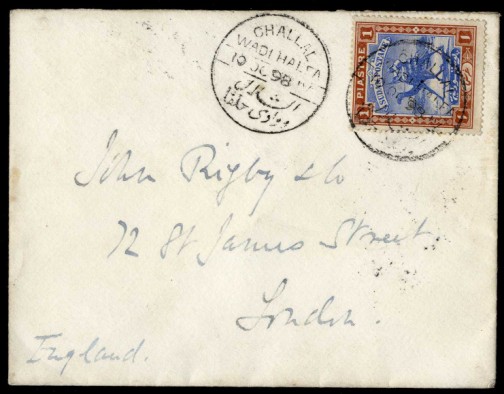 CHALLAL
WADI HALFA
10 JL 98
الشلال
بوادى حلفا
1 PIASTRE 1
SUDAN POSTAGE
1 1
John Rigby & Co
72 St James Street.
London.
England.